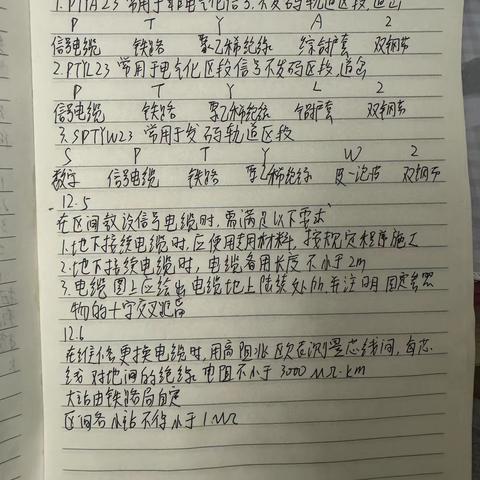 1.PTYA23 常用于非电气化信号,不发码轨道区段,道岔
P T Y A 2
信号电缆 铁路 聚乙稀绝缘 综合护套 双钢带
2.PTYL23 常用于电气化区段信号不发码区段,道岔
P T Y L 2
信号电缆 铁路 聚乙稀绝缘 铝护套 双钢带
3.SPTYW23 常用于发码轨道区段
S P T Y W 2
数字 信号电缆 铁路 聚乙稀绝缘 皮-泡-皮 双钢带
12.5
在区间敷设信号电缆时,需满足以下要求
1.地下接续电缆时,应使用专用材料,按规定程序施工
2.地下接续电缆时,电缆备用长度不小于2m
3.电缆图上应绘出电缆地上陆续处所,并注明固定参照
物的十字交叉距离
12.6
在信号更换电缆时,用高阻兆欧表测量芯线间,每芯
线对地间的绝缘电阻不小于3000MΩ·km
大站由铁路局自定
区间各小站不得小于1MΩ